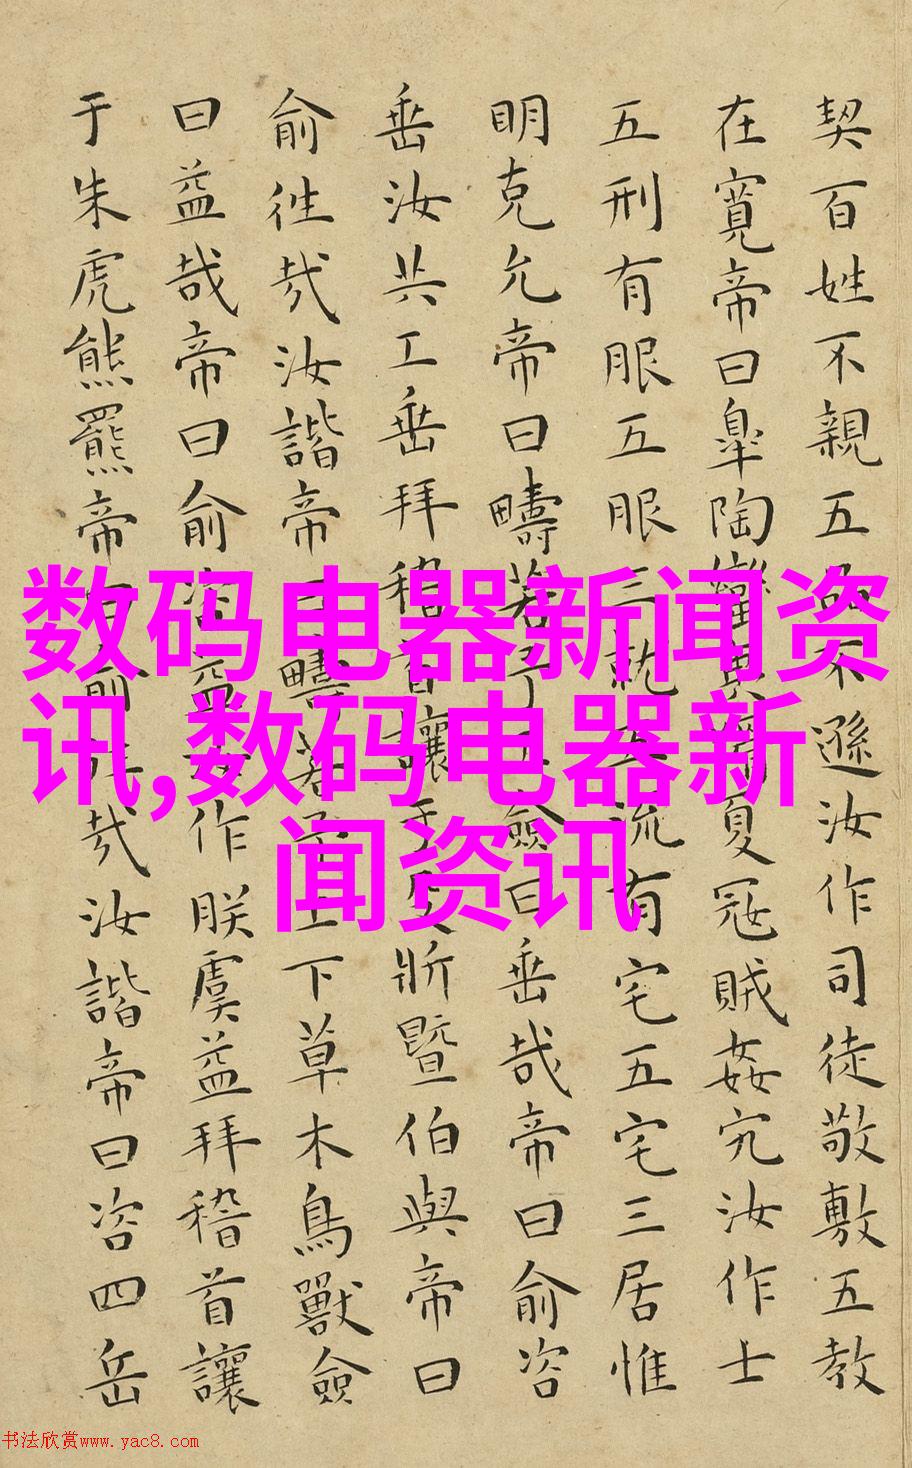 契百姓不親五不遜汝作司徒敬敷五教
在寬帝曰皐陶蠻夷夏寇賊姦宄汝作士
五刑有服五服三就流有宅五宅三居惟
明克允帝曰疇若予僉曰垂哉帝曰俞咨
垂汝共工垂拜稽首讓于殳斨暨伯與帝曰
俞往哉汝諧帝曰疇若予上下草木鳥獸僉
曰益哉帝曰俞咨益汝作朕虞益拜稽首讓
于朱虎熊羆帝曰俞往哉汝諧帝曰咨四岳
数码电器新闻资
讯,数码电器新
闻资讯
书法欣赏www.yac8.com